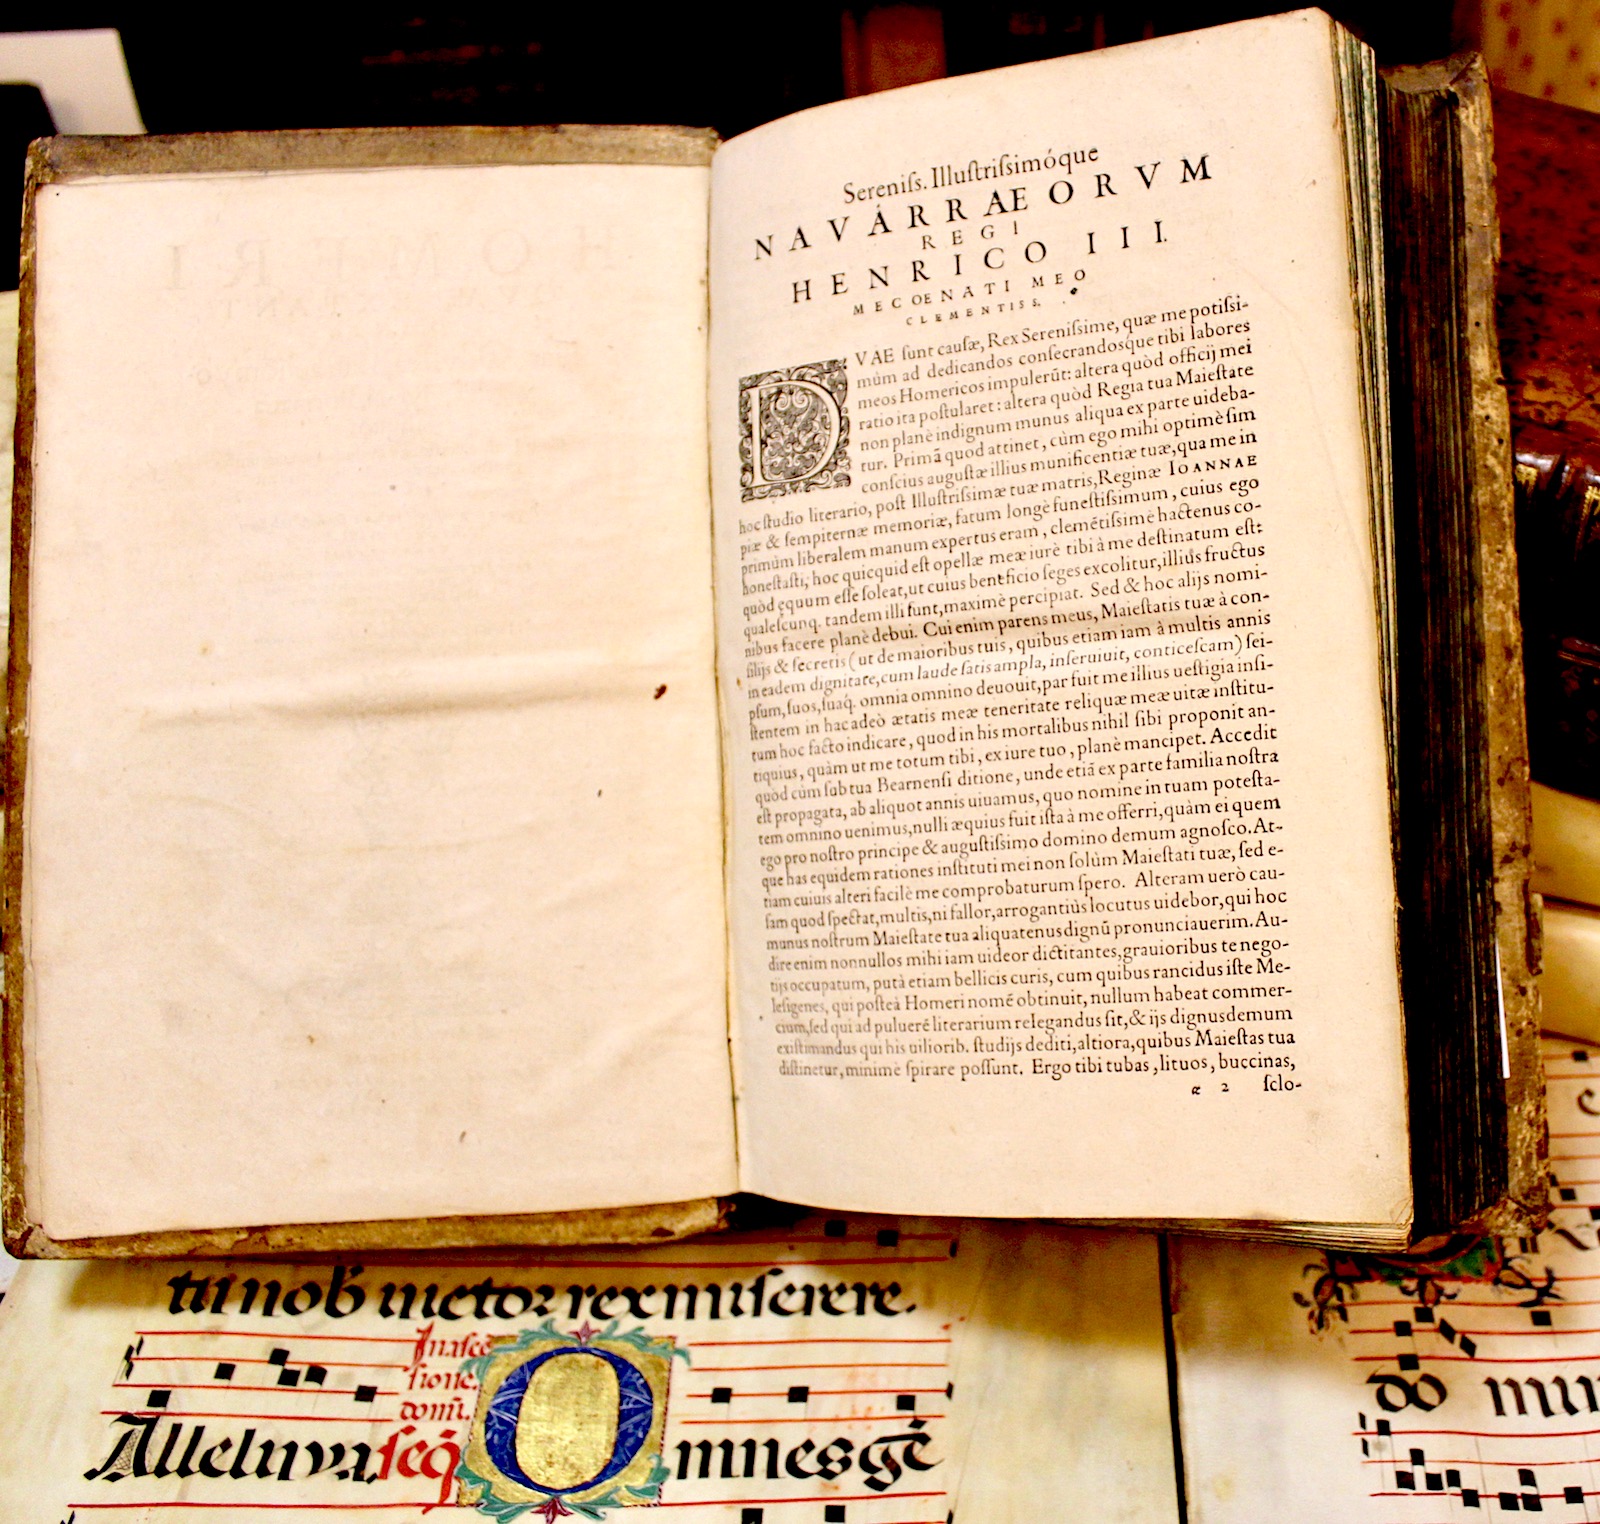 HOMERI
Sereniſs. Illuſtriſsimóque
NAVÁRRAEORVM
REGI
HENRICO III.
MECOENATI MEO
CLEMENTISS.
DVAE ſunt cauſæ, Rex Sereniſsime, quæ me potiſsi-
mùm ad dedicandos conſecrandosque tibi labores
meos Homericos impulerūt: altera quòd officij mei
ratio ita poſtularet: altera quòd Regia tua Maieſtate
non planè indignum munus aliqua ex parte uideba-
tur. Primā quod attinet, cùm ego mihi optimè ſim
conſcius auguſtæ illius munificentiæ tuæ, qua me in
hoc ſtudio literario, poſt Illuſtriſsimæ tuæ matris, Reginæ IOANNAE
piæ & ſempiternæ memoriæ, fatum longè funeſtiſsimum, cuius ego
primùm liberalem manum expertus eram, clemētiſsimè hactenus co-
honeſtaſti; hoc quicquid eſt opellæ meæ iurè tibi à me deſtinatum eſt:
quòd ęquum eſſe ſoleat, ut cuius beneficio ſeges excolitur, illius fructus
qualeſcunq. tandem illi ſunt, maximè percipiat. Sed & hoc alijs nomi-
nibus facere planè debui. Cui enim parens meus, Maieſtatis tuæ à con-
ſilijs & ſecretis (ut de maioribus tuis, quibus etiam iam à multis annis
in eadem dignitate, cum laude ſatis ampla, inſeruiuit, conticeſcam) ſei-
pſum, ſuos, ſuaq́. omnia omnino deuouit, par fuit me illius ueſtigia inſi-
ſtentem in hac adeò ætatis meæ teneritate reliquæ meæ uitæ inſtitu-
tum hoc facto indicare, quod in his mortalibus nihil ſibi proponit an-
tiquius, quàm ut me totum tibi, ex iure tuo, planè mancipet. Accedit
quòd cùm ſub tua Bearnenſi ditione, unde etiā ex parte familia noſtra
eſt propagata, ab aliquot annis uiuamus, quo nomine in tuam poteſta-
tem omnino uenimus, nulli æquius fuit iſta à me offerri, quàm ei quem
ego pro noſtro principe & auguſtiſsimo domino demum agnoſco. At-
que has equidem rationes inſtituti mei non ſolùm Maieſtati tuæ, ſed e-
tiam cuiuis alteri facilè me comprobaturum ſpero. Alteram uerò cau-
ſam quod ſpectat, multis, ni fallor, arrogantiùs locutus uidebor, qui hoc
munus noſtrum Maieſtate tua aliquatenus dignū pronunciauerim. Au-
dire enim nonnullos mihi iam uideor dictitantes, grauioribus te nego-
tijs occupatum, putà etiam bellicis curis, cum quibus rancidus iſte Me-
leſigenes, qui poſteà Homeri nomē obtinuit, nullum habeat commer-
cium, ſed qui ad puluerē literarium relegandus ſit, & ijs dignus demum
exiſtimandus qui his uiliorib. ſtudijs dediti, altiora, quibus Maieſtas tua
diſtinetur, minimè ſpirare poſſunt. Ergo tibi tubas, lituos, buccinas,
æ 2 ſclo-
tu nob uictor rex miſerere.
In aſcē
ſione.
domi.
Alleluya. ſeq Omnes gē
do mun